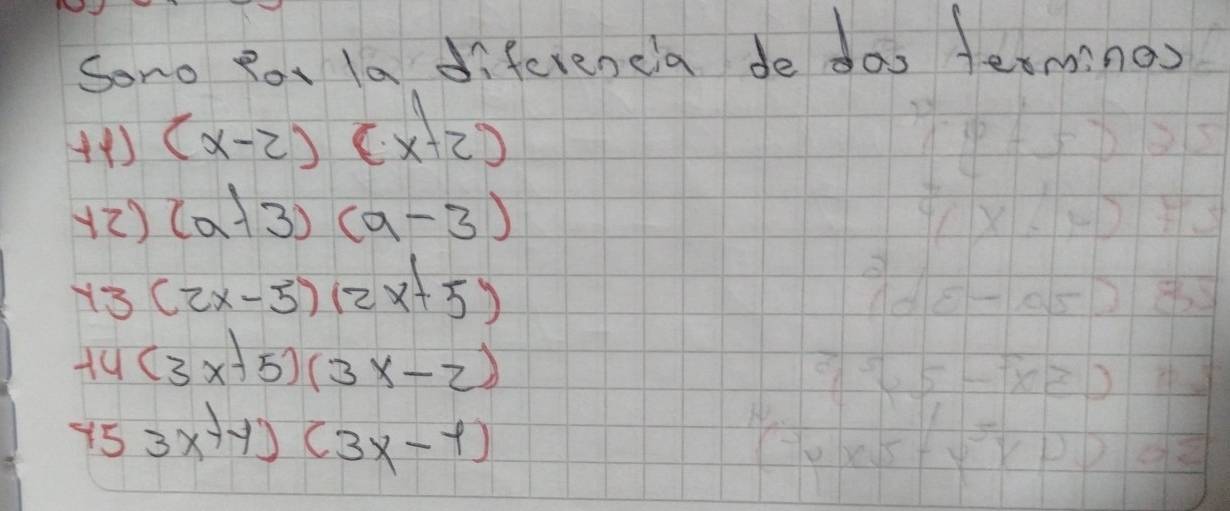 Soma Por la diferencia de dos terminos
11) (x-2) (x+2)
12) (a+3) (a-3)
13 (2x-5) (2x+5)
14 (3x+5) (3x-2)
15 3x+1) (3x-1)